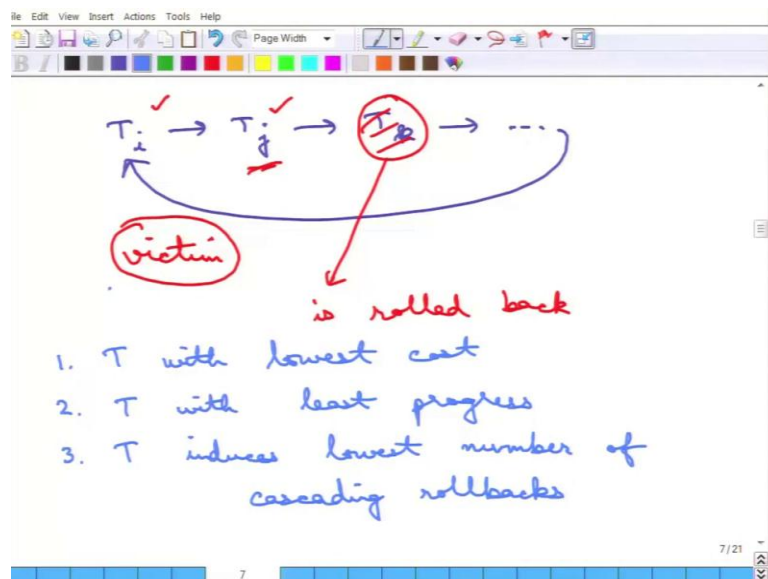 ile Edit View Insert Actions Tools Help
Page Width
B I
Ti → Tj → Tk → ....
victim
is rolled back
1. T with lowest cost
2. T with least progress
3. T induces lowest number of
cascading rollbacks
7/21
7